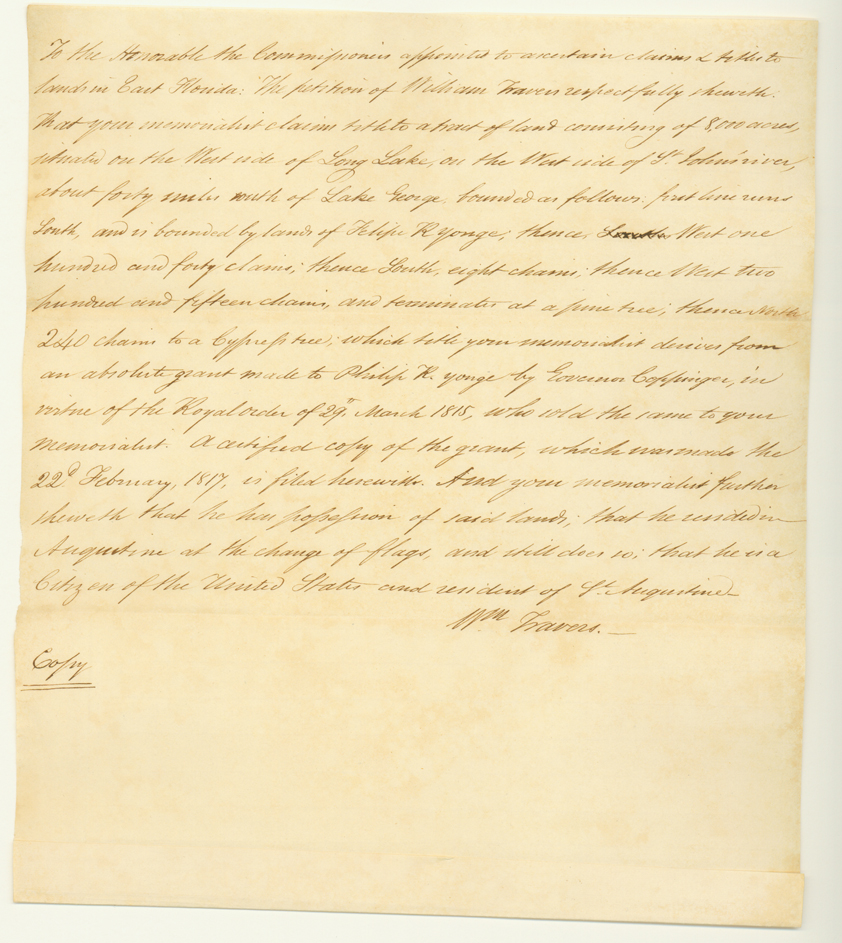 To the Honorable the Commissioners appointed to ascertain claims & titles to
lands in East Florida: The petition of William Travers respectfully sheweth:
That your memorialist claims title to a tract of land consisting of 8,000 acres,
situated on the West side of Long Lake, on the West side of St. John's river,
about forty miles south of Lake George, bounded as follows: first line runs
South, and is bounded by lands of Felipe R Yonge; thence South West one
hundred and forty clains; thence South, eight chains; thence West two
hundred and fifteen chains, and terminates at a pine tree; thence North
240 chains to a Cypress tree; which title your memorialist derives from
an absolute grant made to Philip R. yonge by Governor Coppinger, in
virtue of the Royal order of 29th March 1815, who sold the same to your
memorialist. A certified copy of the grant, which was made the
22d February, 1817, is filed herewith. And your memorialist further
sheweth that he has possession of said lands; that he resided in
Augustine at the change of flags, and still does so; that he is a
Citizen of the United States and resident of St. Augustine
Wm Travers.
Copy